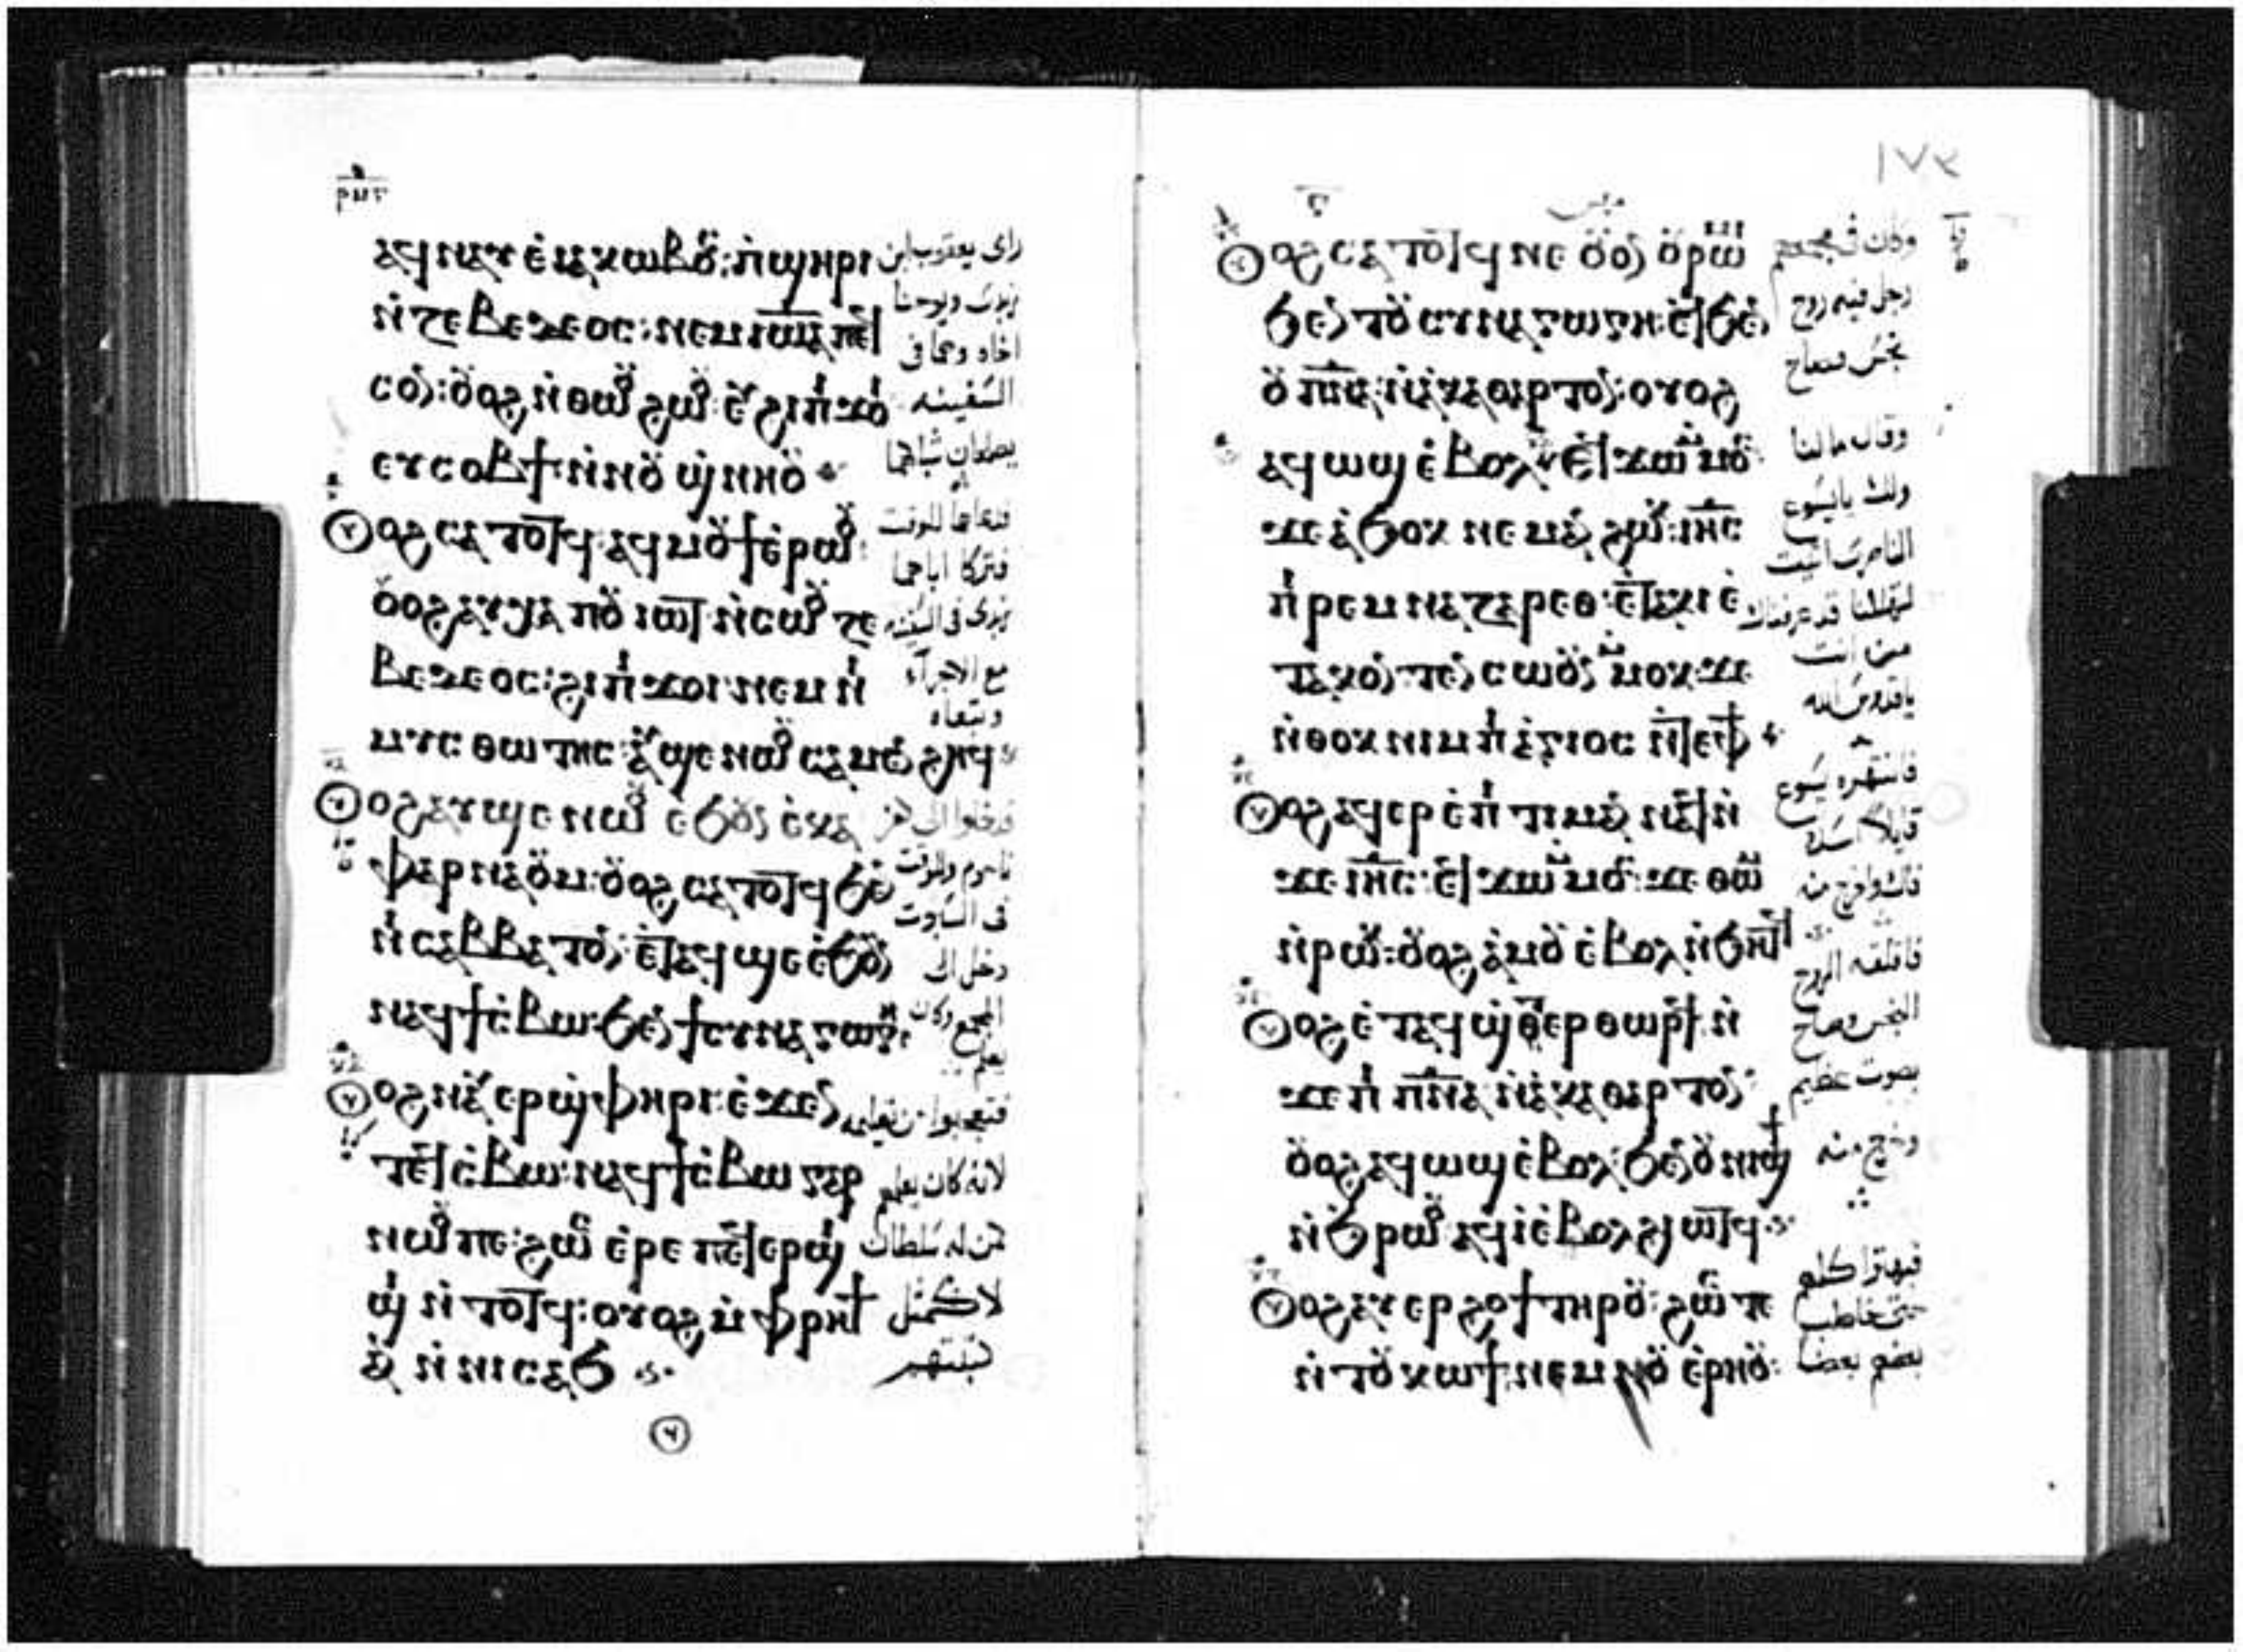 ⲁϥⲛⲁⲩ ⲉⲓⲁⲕⲱⲃⲟⲥ: ⲡϣⲏⲣⲓ
ⲛⲍⲉⲃⲉⲇⲉⲟⲥ: ⲛⲉⲙ ⲓⲱⲁ ⲡⲉϥ
ⲥⲟⲛ: ⲟⲩⲟϩ ⲛⲑⲱⲟⲩ ϩⲱⲟⲩ ⲉⲩ ϩⲓ ⲡϫⲟⲓ
ⲉⲩⲥⲟⲃϯ ⲛⲛⲟⲩϣⲛⲏⲟⲩ
ⲟⲩⲟϩ ⲥⲁⲧⲟⲧϥ ⲁϥⲙⲟⲩϯ ⲉⲣⲱⲟⲩ
ⲟⲩⲟϩ ⲁⲩⲭⲁ ⲡⲟⲩⲓⲱⲧ ⲛⲥⲱⲟⲩ ⲍⲉ
ⲃⲉⲇⲉⲟⲥ: ϩⲓ ⲡϫⲟⲓ ⲛⲉⲙ ⲛⲓ
ⲙⲩⲥⲑⲱⲧⲏⲥ: ⲁⲩϣⲉⲛⲱⲟⲩ ⲥⲁⲙⲉⲛϩⲏϥ
ⲟⲩⲟϩ ⲁⲩϣⲉⲛⲱⲟⲩ ⲉϧⲟⲩⲛ ⲉⲕⲁ
ⲫⲁⲣⲛⲁⲟⲩⲙ: ⲟⲩⲟϩ ⲥⲁⲧⲟⲧϥ ϧⲉⲛ
ⲛⲓⲥⲁⲃⲃⲁⲧⲟⲛ: ⲉⲧⲁϥϣⲉ ⲉϧⲟⲩⲛ
ⲛⲁϥϯⲥⲃⲱ ϧⲉⲛ ϯⲥⲩⲛⲁⲅⲱⲅⲏ:
ⲟⲩⲟϩ ⲛⲁⲩⲉⲣϣⲫⲏⲣⲓ ⲉϫⲉⲛ
ⲧⲉϥⲥⲃⲱ: ⲛⲁϥϯⲥⲃⲱ ⲅⲁⲣ
ⲛⲱⲟⲩ ⲡⲉ: ϩⲱⲥ ⲉⲣⲉ ⲡⲉⲣϣⲓ
ϣⲓ ⲛⲧⲟⲧϥ: ⲟⲩⲟϩ ⲙⲫⲣⲏϯ
ⲁⲛ ⲛⲛⲓⲥⲁϧ
راى يعقوب ابن
زبدى ويوحنا
اخاه وهما فى
السفينه
يصلحان شباكهما
فدعاهما للوقت
فتركا اباهما
زبدى فى السفينه
مع الاجرآء
وتبعاه
فدخلوا الى كفر
ناحوم وللوقت
فى السبوت
دخل الى
المجمع وكان
يعلم
فتعجبوا من تعليمه
لانه كان يعلم
كمن له سلطان
لا كمثل
كتبتهم
١٧٤
ⲟⲩⲟϩ ⲥⲁⲧⲟⲧϥ ⲛⲉ ⲟⲩⲟⲛ ⲟⲩⲣⲱⲙⲓ
ϧⲉⲛ ⲧⲟⲩⲥⲩⲛⲁⲅⲱⲅⲏ: ⲉϥϧⲉⲛ
ⲟⲩⲡⲛⲁ: ⲛⲁⲕⲁⲑⲁⲣⲧⲟⲛ: ⲟⲩⲟϩ
ⲁϥⲱϣ ⲉⲃⲟⲗ ⲉϥϫⲱⲙⲙⲟⲥ
ϫⲉ ⲁϧⲟⲕ ⲛⲉⲙⲁⲛ ϩⲱⲕ: ⲓⲏⲥ
ⲡⲓⲣⲉⲙⲛⲁⲍⲁⲣⲉⲑ: ⲉⲧⲁⲕⲓ ⲉ
ⲧⲁⲕⲟⲛ: ⲧⲉⲛⲥⲱⲟⲩⲛ ⲙⲙⲟⲕ ϫⲉ
ⲛⲑⲟⲕ ⲛⲓⲙ ⲡⲓⲁⲅⲓⲟⲥ ⲛⲧⲉ ⲫϯ
ⲟⲩⲟϩ ⲁϥⲉⲣⲉⲡⲓⲧⲓⲙⲁⲛ ⲛⲁϥ ⲛ
ϫⲉ ⲓⲏⲥ: ⲉϥϫⲱⲙⲙⲟⲥ: ϫⲉ ⲑⲱⲙ
ⲛⲣⲱⲕ: ⲟⲩⲟϩ ⲁⲙⲟⲩ ⲉⲃⲟⲗ ⲛϧⲏⲧϥ
ⲟⲩⲟϩ ⲉⲧⲁϥϣⲑⲉⲣⲑⲱⲣϥ ⲛ
ϫⲉ ⲡⲓⲡⲛⲁ ⲛⲁⲕⲁⲑⲁⲣⲧⲟⲛ
ⲟⲩⲟϩ ⲁϥⲱϣ ⲉⲃⲟⲗ: ϧⲉⲛ ⲟⲩⲛⲓϣϯ
ⲛϧⲣⲱⲟⲩ ⲁϥⲓ ⲉⲃⲟⲗ ϩⲓⲱⲧϥ
ⲟⲩⲟϩ ⲁⲩⲉⲣϩⲟϯ ⲧⲏⲣⲟⲩ: ϩⲱⲥⲧⲉ
ⲛⲧⲟⲩⲕⲱϯ ⲛⲉⲙ ⲛⲟⲩⲉⲣⲏⲟⲩ:
وكان فى مجمعهم
رجل فيه روح
نجس فصاح
وقال ما لنا
ولك يا يسوع
الناصرى اتيت
لتهلكنا قد عرفناك
من انت
يا قدوس الله
فانتهره يسوع
قايلا اسدد
فاك واخرج منه
فاقلقه الروح
النجس وصاح
بصوت عظيم
وخرج منه
كلهم
حتى خاطب
بعضهم بعضا